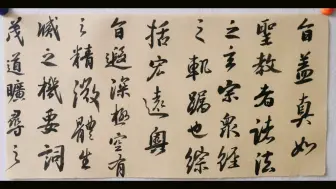 旨蓋真如
聖教者諸法
之玄宗衆經
之軌躅也綜
括宏遠奧
旨遐深極空有
之精微體生
滅之機要詞
茂道曠尋之